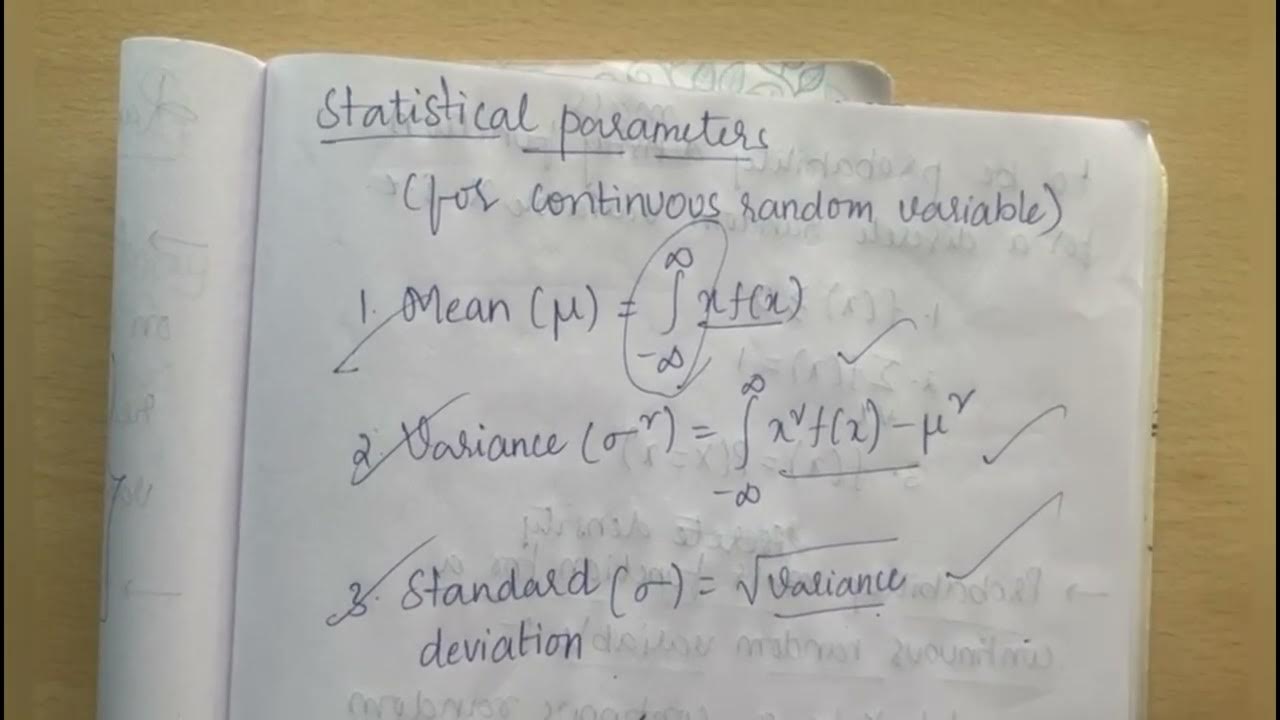 Statistical parameters
(for continuous random variable)
1. Mean (μ) = ∫_{-∞}^{∞} x f(x)
2. Variance (σ²) = ∫_{-∞}^{∞} x² f(x) - μ²
3. Standard (σ) = √variance
deviation